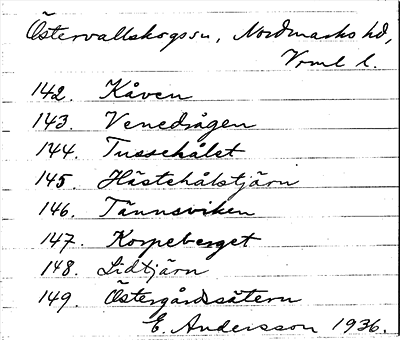 Östervallskogs sn, Nordmarks hd,
Vrml l.
142. Kåven
143. Venedrågen
144. Tussehålet
145. Hästehålstjärn
146. Tannsviken
147. Korpeberget
148. Lidtjärn
149. Östergårdssätern
E. Andersson 1936.